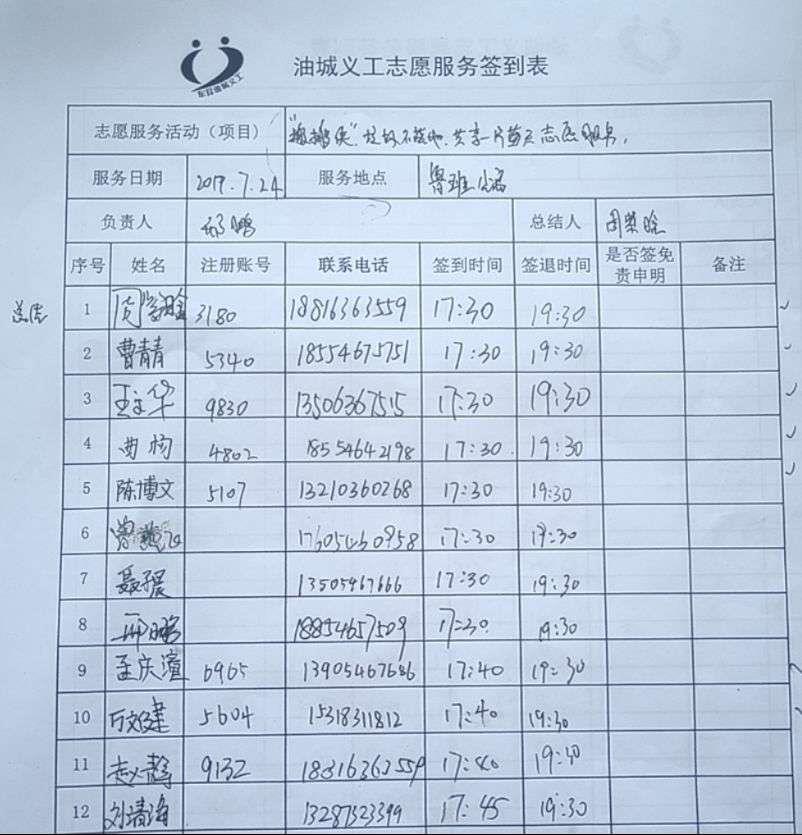 东营油城义工
油城义工志愿服务签到表
志愿服务活动（项目） 共享一片蓝天志愿服务.
服务日期 2017.7.24 服务地点 鲁班公寓
负责人 邱鹏 总结人
序号 姓名 注册账号 联系电话 签到时间 签退时间 是否签免责申明 备注
总结 1 3180 18816363559 17:30 19:30
2 曹青青 5340 18554675751 17:30 19:30
3 王文华 9830 13506367515 17:30 19:30
4 4802 18554642198 17:30 19:30
5 陈博文 5107 13210360268 17:30 19:30
6 17:30 19:30
7 13505467666 17:30 19:30
8 18854657509 17:30 19:30
9 孟庆澶 6965 13905467686 17:40 19:30
10 5604 15318311812 17:40 19:30
11 9132 17:40
12 刘靖海 13287323399 17:45 19:30